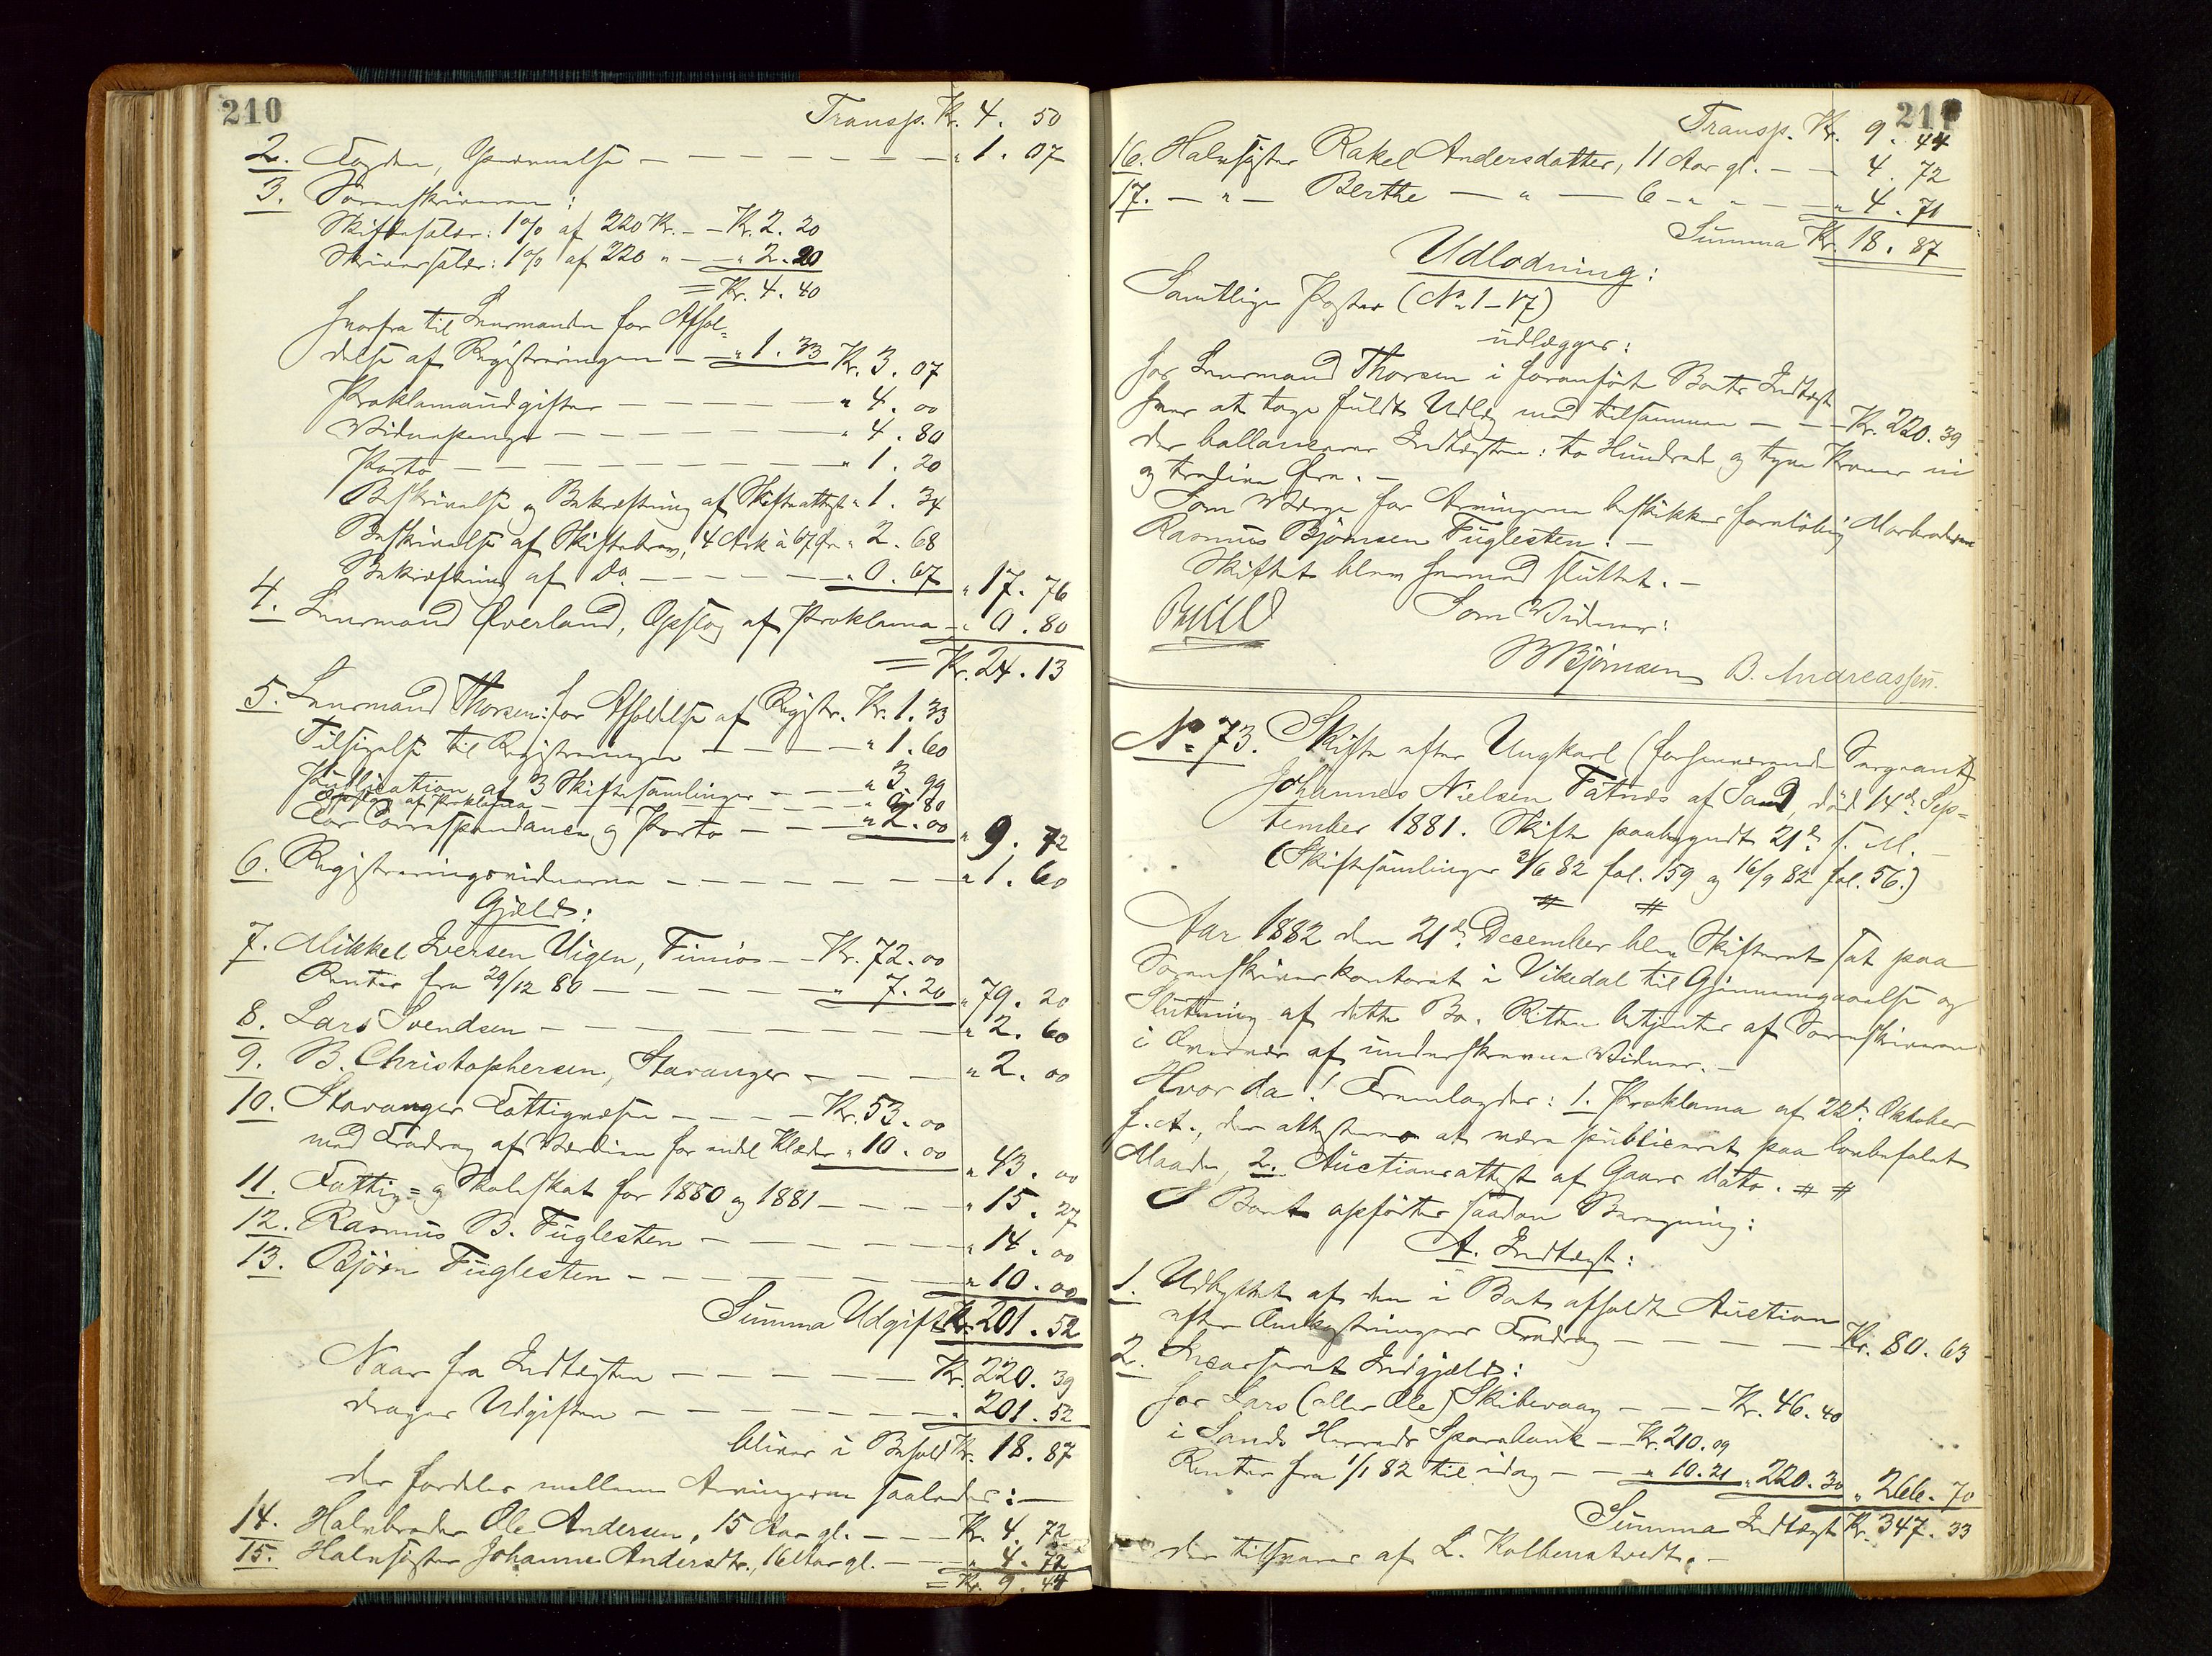 210
Transp. Kr. 4. 50
2. Fogden, Opnævnelse — " 1. 07
3. Sorenskriveren:
Skiftesalær: 1% af 220 Kr. — Kr. 2. 20
Skriversalær: 1% af 220 " — " 2. 20
= Kr. 4. 40
hvorfra til Lensmanden for Afhol-
delse af Registreringen — " 1. 33 Kr. 3. 07
Proklamaudgifter — " 4. 00
Vidnepenge — " 4. 80
Porto — " 1. 20
Beskrivelse og Bekræftning af Skifteattest " 1. 34
Beskrivelse af Skiftebrev, 4 Ark à 67 Øre " 2. 68
Bekræftning af do — " 0. 67 " 17. 76
4. Lensmand Qverland, Opslag af Proklama — " 0. 80
= Kr. 24. 13
5. Lensmand Thorsen: for Afholdelse af Registr. Kr. 1. 33
Tilsigelse til Registreringen — " 1. 60
Publication af 3 Skiftesamlinger — " 3. 99
Opslag af Proklama — " 0. 80
For Correspondance og Porto — " 2. 00 " 9. 72
6. Registreringsvidnerne — " 1. 60
Gjæld:
7. Mikkel Iversen Vigen, Finnøs — Kr. 72. 00
Renter fra 29/12 80 — " 7. 20 " 79. 20
8. Lars Svendsen — " 2. 60
9. B. Christophersen, Stavanger — " 2. 00
10. Stavanger Fattigvæsen — Kr. 53. 00
med Fradrag af Værdien for endel Klæder " 10. 00 " 43. 00
11. Fattig- og Skoleskat for 1880 og 1881 — " 15. 27
12. Rasmus B. Fuglesten — " 14. 00
13. Bjørn Fuglesten — " 10. 00
Summa Udgift Kr. 201. 52
Naar fra Indtægten — Kr. 220. 39
drages Udgiften — " 201. 52
bliver i Behold Kr. 18. 87
der fordeles mellem Arvingerne saaledes: —
14. Halvbroder Ole Andersen, 15 Aar gl. — Kr. 4. 72
15. Halvsøster Johanne Andersdtr., 16 Aar gl. — " 4. 72
= Kr. 9. 44
211
Transp. Kr. 9. 44
16. Halvsøster Rakel Andersdatter, 11 Aar gl. — 4. 72
17. — " — Berthe — " — 6 — " — " 4. 71
Summa Kr. 18. 87
Udlodning:
Samtlige Poster (No 1-17)
udlægges:
hos Lensmand Thorsen i foranførte Boets Indtægt
hver at tage fuldt Udlæg med tilsammen — Kr. 220. 39
der ballancerer Indtægten: to Hundrede og tyve Kroner ni
og tredive Øre. —
Som Værge for Arvingerne beskikkes foreløbig Morbroderen
Rasmus Bjørnsen Fuglesten. —
Skiftet blev hermed sluttet. —
Som Vidner:
Bjørnsen B. Andreassen.
No 73. Skifte efter Ungkarl (forhenværende Sergeant)
Johannes Nielsen Fatnes af Sand, død 14de Sep-
tember 1881. Skifte paabegyndt 21de s. M. —
(Skiftesamlinger 2/6 82 fol. 159 og 16/9 82 fol. 56.)
Aar 1882 den 21de December blev Skifteret sat paa
Sorenskriverkontoret i Vikedal til Gjennemgaaelse og
Slutning af dette Bo. Retten betjentes af Sorenskriveren
i Overvær af underskrevne Vidner. —
Hvorda! Fremlagdes: 1. Proklama af 22de Oktober
f. A., der attesteres at være publiceret paa lovbefalet
Maade, 2. Auctionsattest af Gaars dato. # #
I Boet opførtes saadan Beregning:
A. Indtægt:
1. Udbyttet af den i Boet afholdte Auction
efter Omkostningers Fradrag — Kr. 80. 63
2. Incasseret Indgjæld:
hos Lars (eller Ole) Skibevaag — Kr. 46. 40
i Sands Herreds Sparebank — Kr. 210. 09
Renter fra 1/1 82 til idag — " 10. 21 " 220. 30 " 266. 70
Summa Indtægt Kr. 347. 33
der tilsvares af L. Kolbenstvedt. —